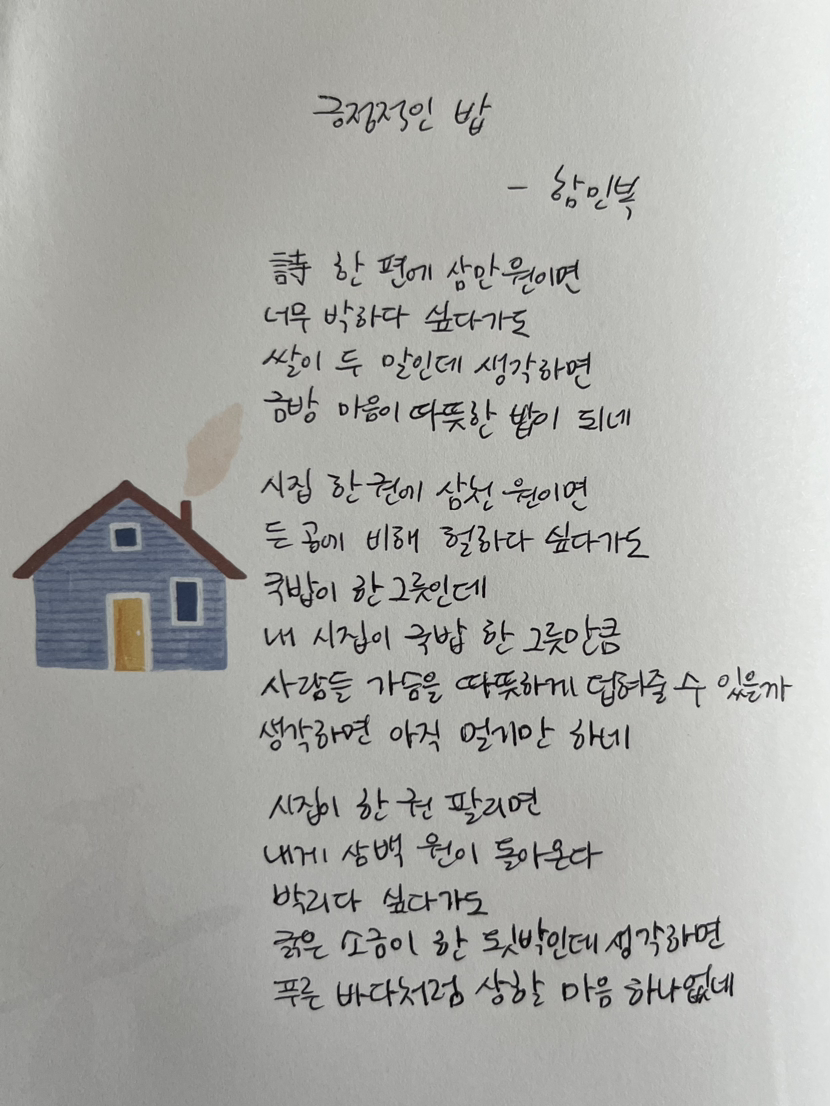 긍정적인 밥
- 함민복
詩 한 편에 삼만 원이면
너무 박하다 싶다가도
쌀이 두 말인데 생각하면
금방 마음이 따뜻한 밥이 되네
시집 한 권에 삼천 원이면
든 공에 비해 헐하다 싶다가도
국밥이 한 그릇인데
내 시집이 국밥 한 그릇만큼
사람들 가슴을 따뜻하게 덥혀줄 수 있을까
생각하면 아직 멀기만 하네
시집이 한 권 팔리면
내게 삼백 원이 돌아온다
박리다 싶다가도
굵은 소금이 한 됫박인데 생각하면
푸른 바다처럼 상할 마음 하나 없네